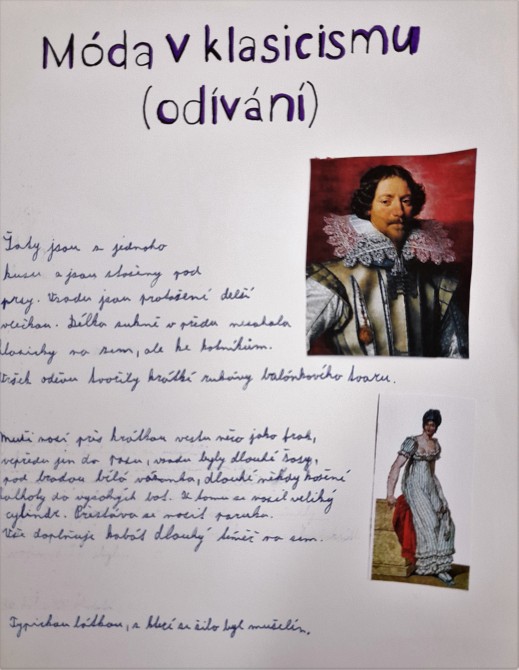 Móda v klasicismu
(odívání)
Šaty jsou z jednoho
kusu a jsou staženy pod
prsy. Vzadu jsou prodloužené delší
vlečkou. Délka sukně v předu nesahala
vždy na zem, ale ke kotníkům.
Vršek oděvu tvořily krátké rukávy balónkového tvaru.
Muži nosí přes krátkou vestu něco jako frak,
vepředu jen do pasu, vzadu byly dlouhé šosy,
pod bradou bílá vázanka, dlouhé někdy kožené
kalhoty do vysokých bot. K tomu se nosil veliký
cylindr. Přestává se nosit paruka.
Vše doplňuje kabát dlouhý téměř na zem.
Typickou látkou, z které se šilo byl mušelín.